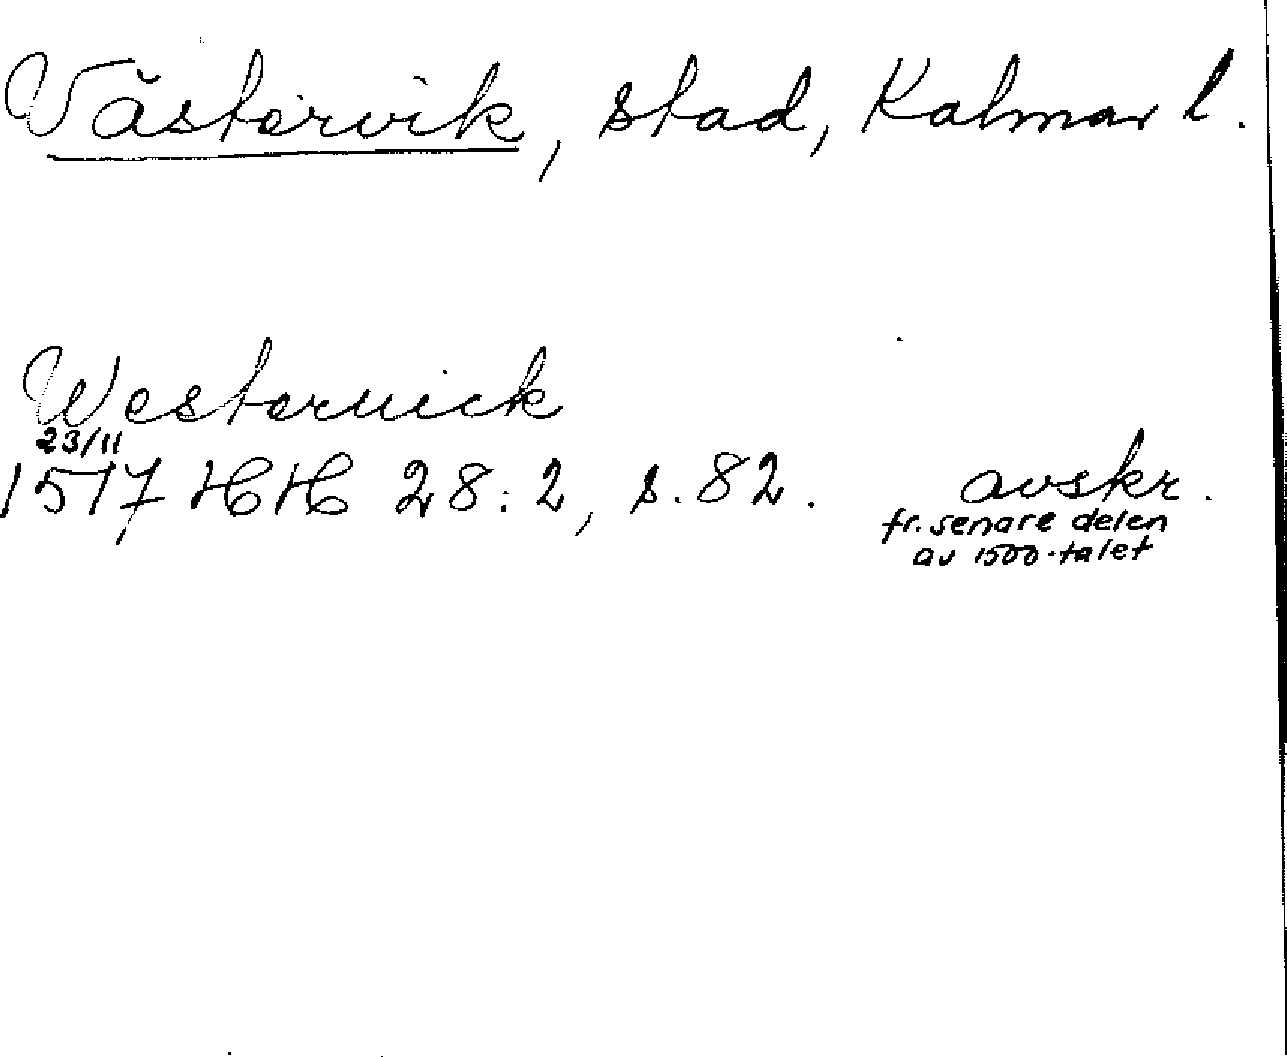 Västervik, stad, Kalmar l.
Westeruick
23/11
1517 HH 28:2, s. 82. avskr.
fr. senare delen
av 1500-talet